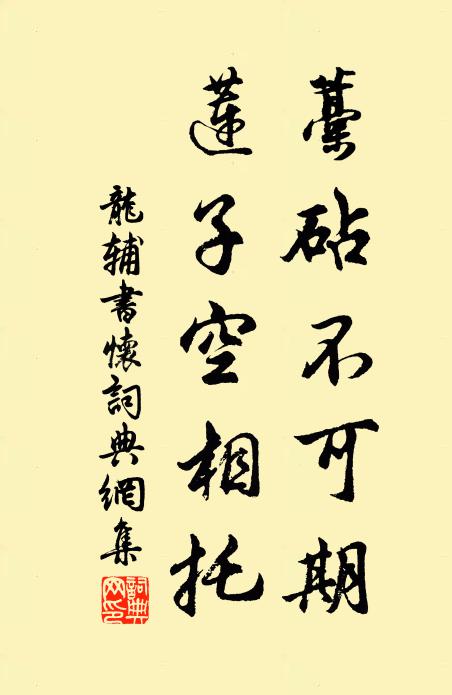 藁砧不可期
蓮子空相托
龍輔書懷詞典網集
詞典網印